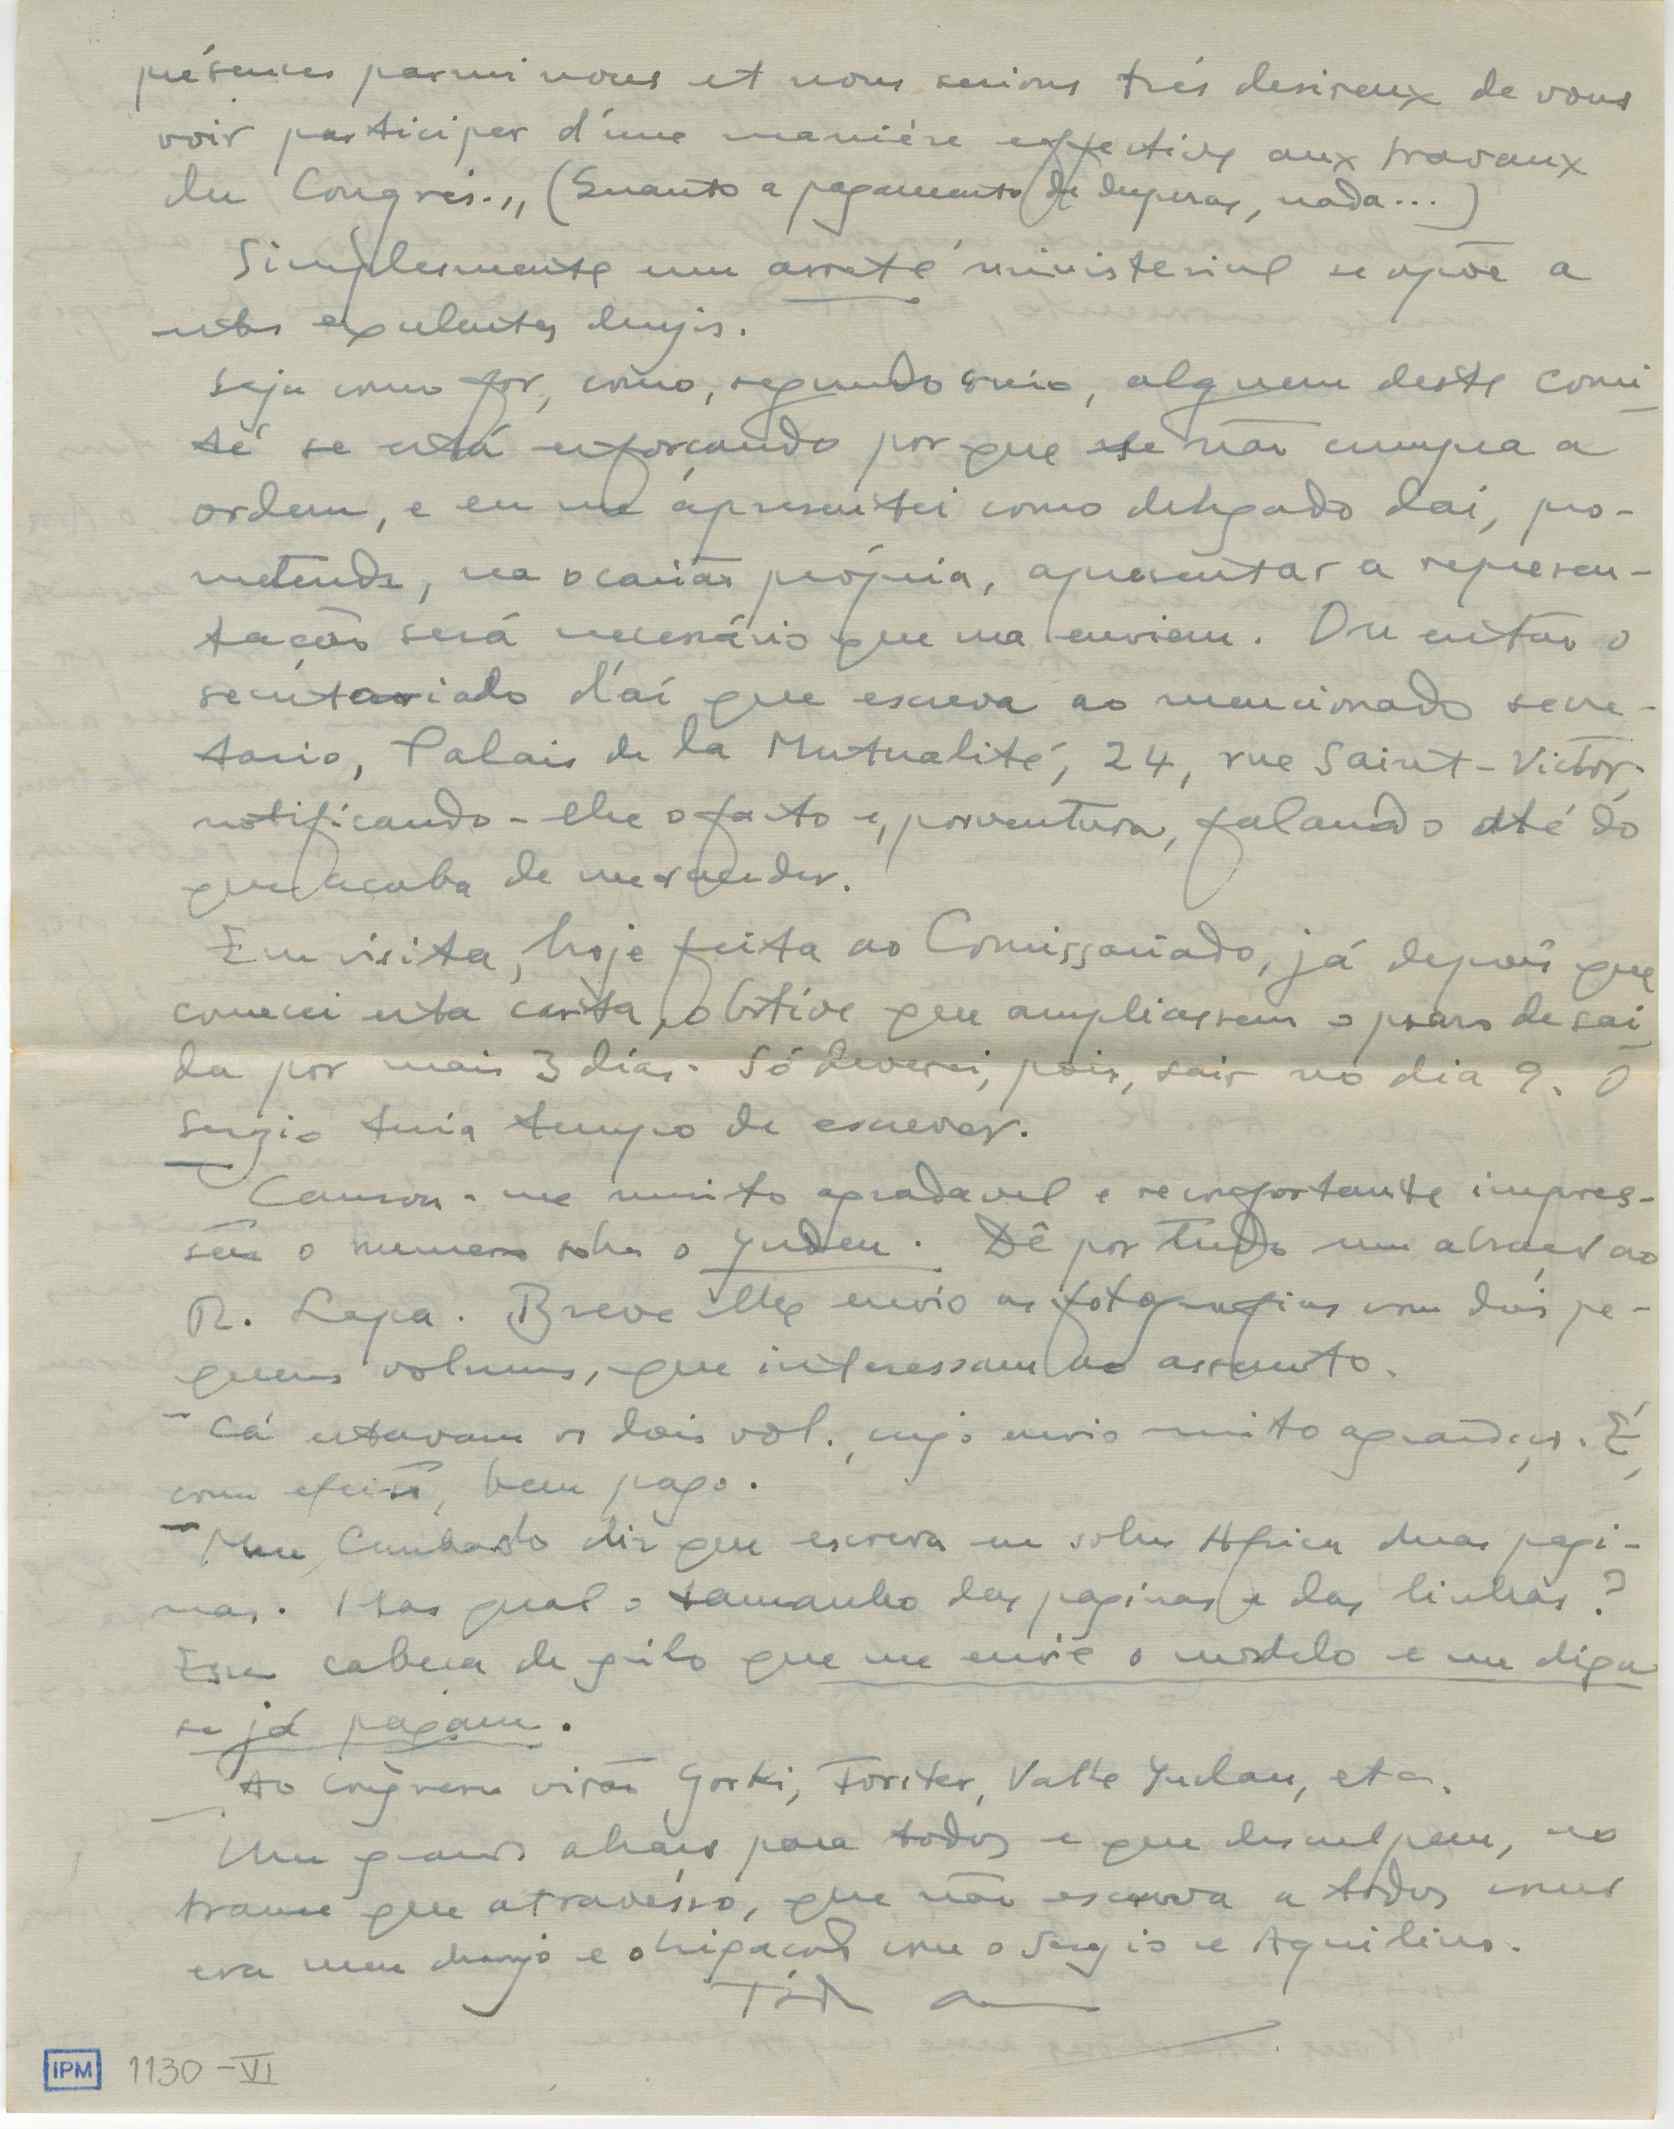 présences parmi nous et nous serions trés desireux de vous
voir participer d'une maniére effective aux travaux
du Congrés.,, (Quanto a pagamento de despesas, nada...)
Simplesmente um arreté ministerial se opõe a
estes exculentes desejos.
Seja como for, como, segundo creio, alguem deste comi-
té se está esforçando por que se não cumpra a
ordem, e eu me apresentei como delegado daí, pro-
metendo, na ocasião própria, apresentar a represen-
tação será necessário que ma enviem. Ou então o
secretariado d'aí que escreva ao mencionado secre-
tario, Palais de la Mutualité, 24, rue Saint-Victor,
notificando-lhe o facto e, porventura, falando até do
que acaba de me suceder.
Em visita, hoje feita ao Comissariado, já depois que
comecei esta carta, obtive que ampliassem o prazo de saí
da por mais 3 dias. Só deverei, pois, sair no dia 9. O
Sergio teria tempo de escrever.
Causou-me muito agradavel e reconfortante impres-
são o numero sobre o Judeu. Dê por tudo um abraço ao
R. Lapa. Breve lhe envio as fotografias com dois pe-
quenos volumes, que interessam ao assunto.
Cá estavam os dois vol., cujo envio muito agradeço. É,
com efeito, bem pago.
Meu Cunhado diz que escreva eu sobre Africa duas pagi-
nas. Mas qual o tamanho das paginas e das linhas?
Essa cabeça de grilo que me envie o modelo e me diga
se já pagam.
Ao congresso virão Gorki, Forster, Valle Inclan, etc.
Um grande abraço para todos e que desculpem, no
transe que atravesso, que não escreva a todos como
era meu desejo e obrigação com o Sergio e Aquilino.
IPM 1130-VI